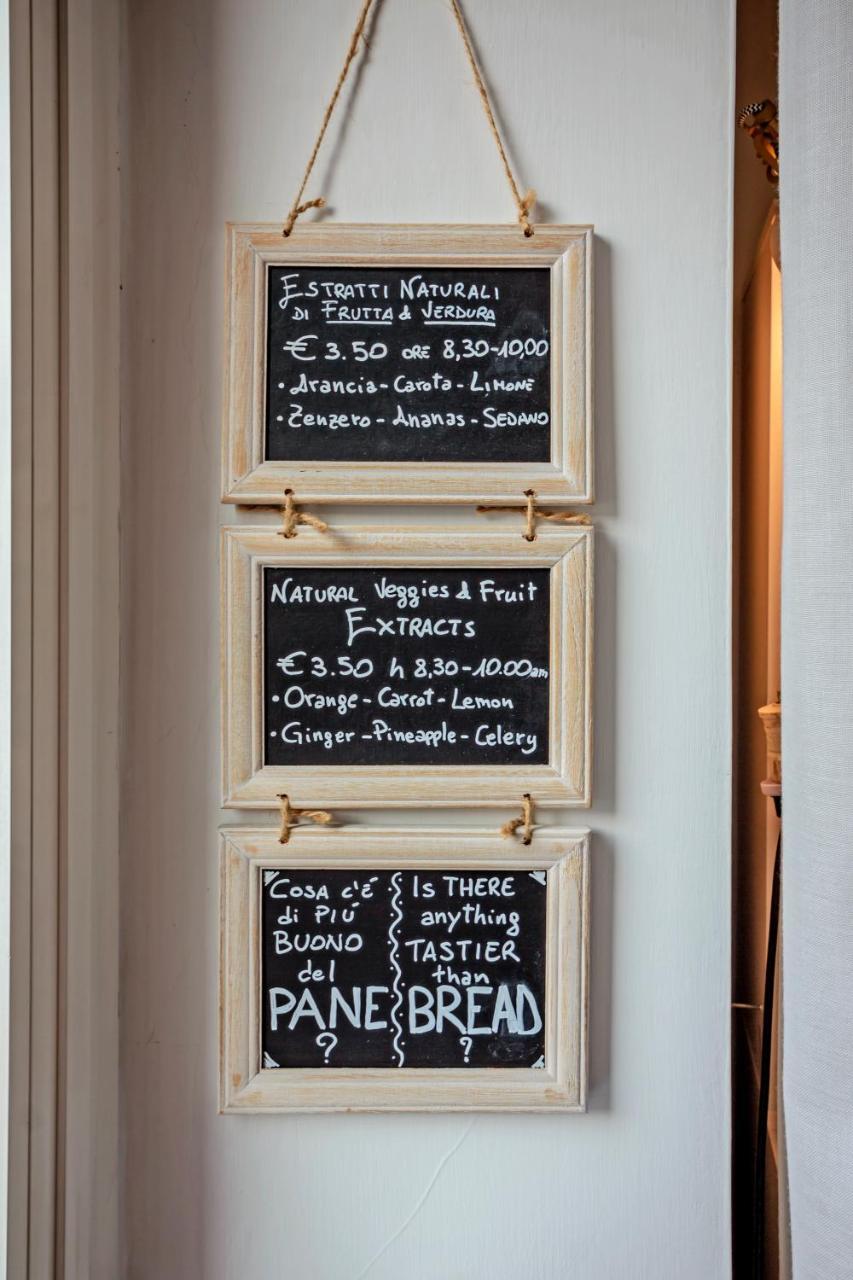 ESTRATTI NATURALI
DI FRUTTA & VERDURA
€ 3.50 ORE 8,30-10,00
• Arancia - Carota - LIMONE
• Zenzero - Ananas - SEDANO
NATURAL Veggies & Fruit
EXTRACTS
€ 3.50 h 8,30-10.00am
• Orange - Carrot - Lemon
• Ginger - Pineapple - Celery
COSA c'É
di PIÚ
BUONO
del
PANE
?
IS THERE
anything
TASTIER
than
BREAD
?